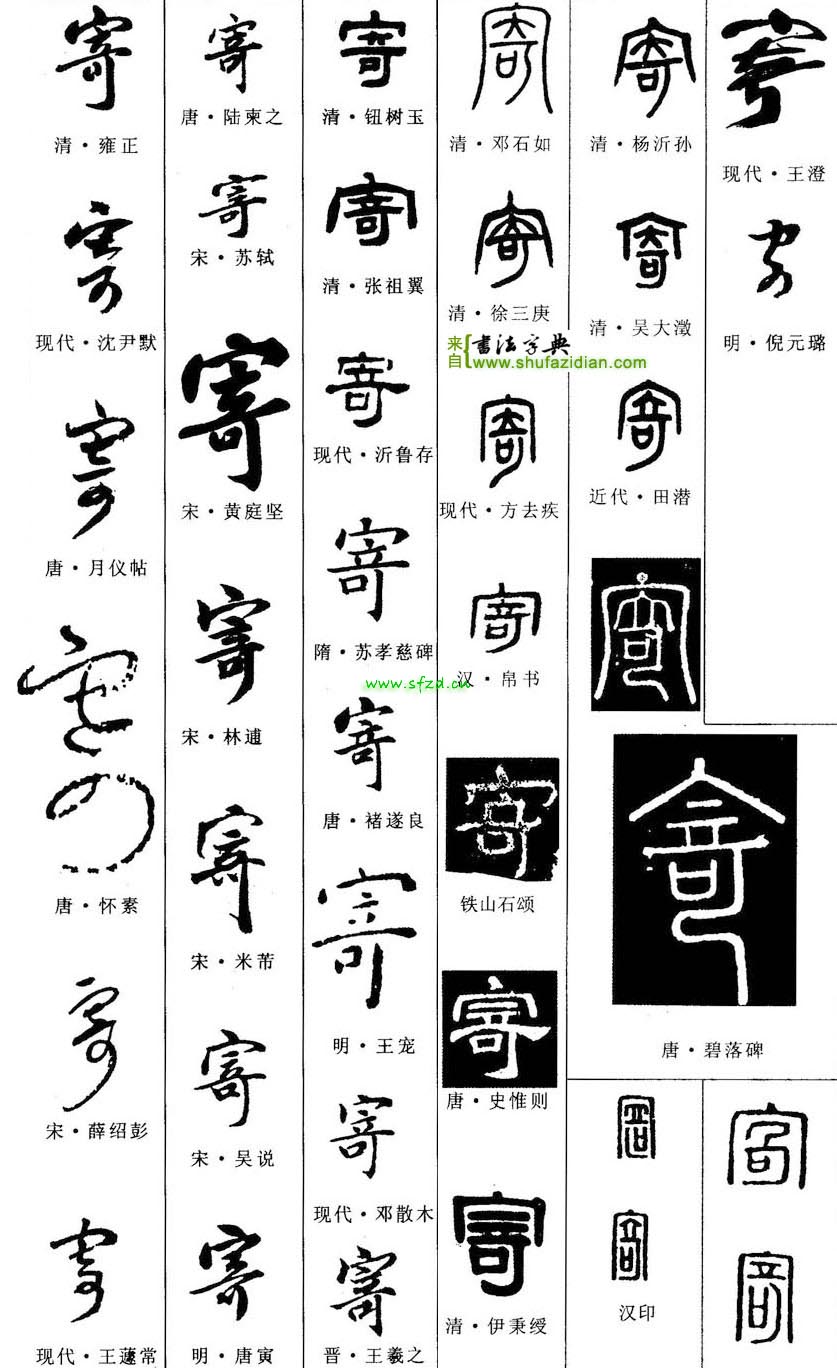 寄
清·雍正
寄
现代·沈尹默
寄
唐·月仪帖
寄
唐·怀素
寄
宋·薛绍彭
寄
现代·王蘧常
寄
唐·陆柬之
寄
宋·苏轼
寄
宋·黄庭坚
寄
宋·林逋
寄
宋·米芾
寄
宋·吴说
寄
明·唐寅
寄
清·钮树玉
寄
清·张祖翼
寄
现代·沂鲁存
寄
隋·苏孝慈碑
www.sfzd.cn
寄
唐·褚遂良
寄
明·王宠
寄
现代·邓散木
寄
晋·王羲之
寄
清·邓石如
寄
清·徐三庚
来自{書法字典
www.shufazidian.com
寄
现代·方去疾
寄
汉·帛书
寄
铁山石颂
寄
唐·史惟则
寄
清·伊秉绶
寄
清·杨沂孙
寄
清·吴大澂
寄
近代·田潜
寄
寄
现代·王澄
寄
明·倪元璐
寄
唐·碧落碑
寄
寄
汉印
寄
寄